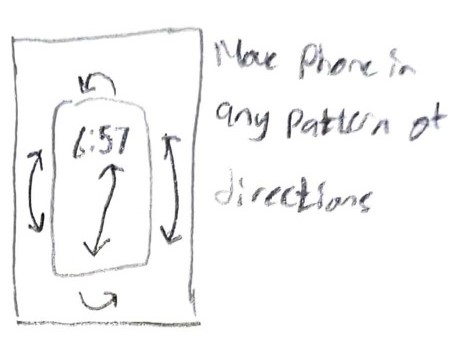 Move Phone in
6:57
any Pattern of
directions